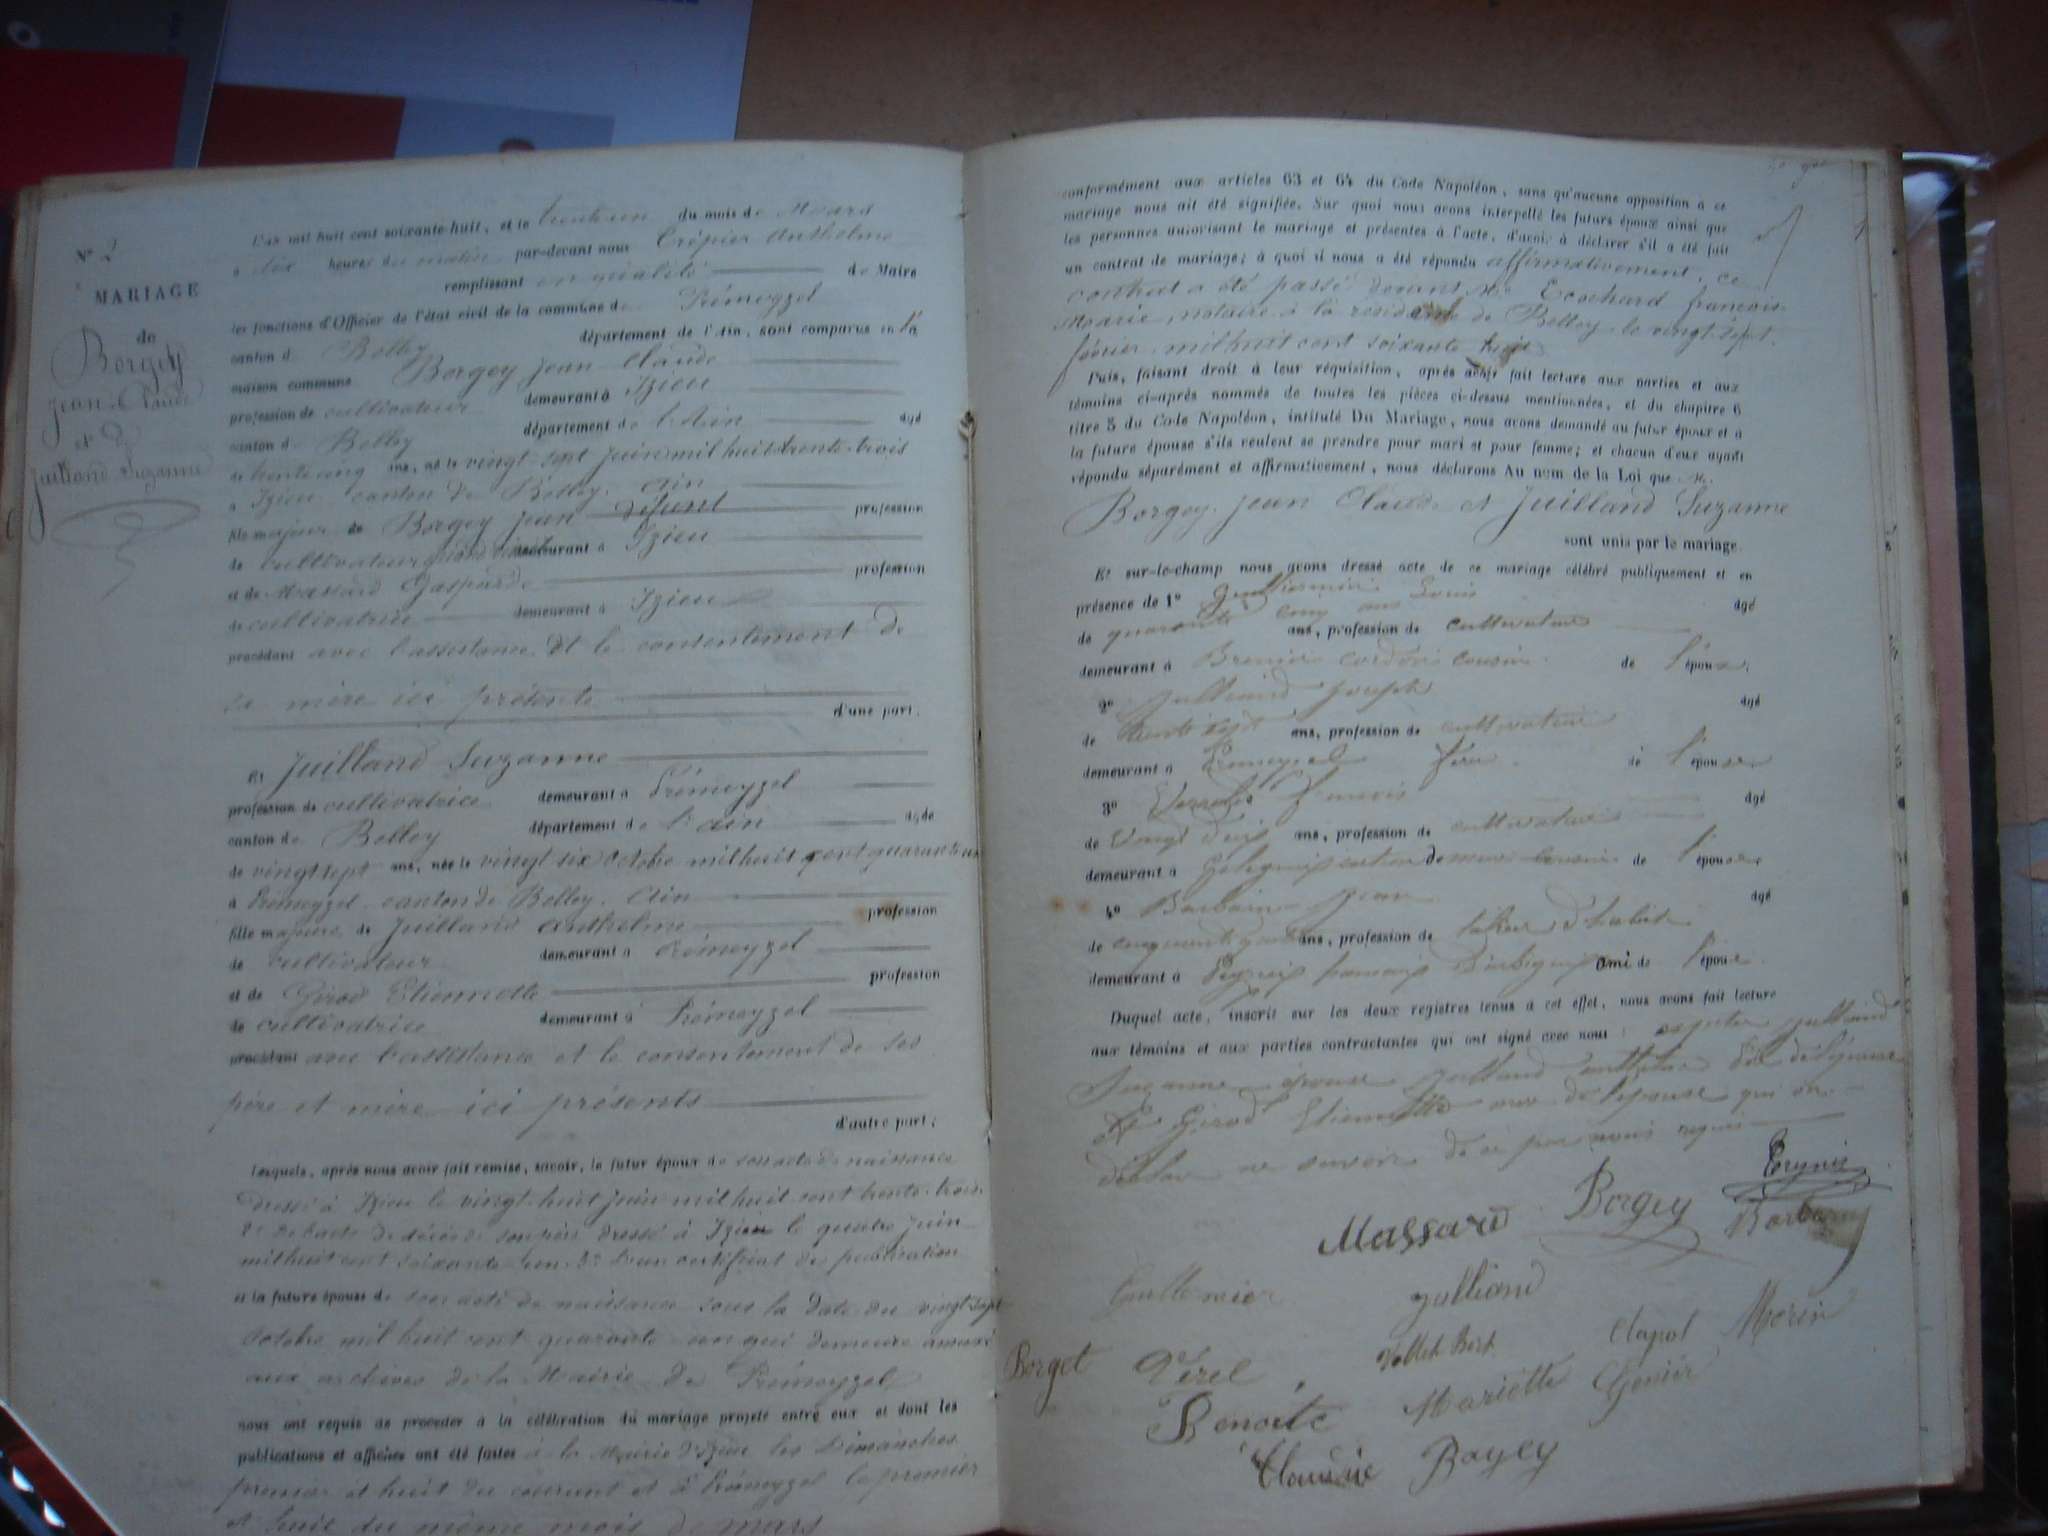 N° 2
MARIAGE
de
Borgey
Jean Claude
et de
Juilland Suzanne
L'an mil huit cent soixante-huit, et le trente un du mois de Mars
à dix heures du matin, par-devant nous Crépier Anthelme
remplissant en qualité de Maire
les fonctions d'Officier de l'état civil de la commune de Prémeyzel
canton de Belley département de l'Ain, sont comparus en la
maison commune Borgey Jean Claude
profession de cultivateur demeurant à Izieu
canton de Belley département de l'Ain âgé
de trente cinq ans, né le vingt-sept Juin mil huit trente-trois
à Izieu canton de Belley, Ain
fils majeur de Borgey Jean défunt profession
de cultivateur quand vivait demeurant à Izieu
et de Massard Gasparde profession
de cultivatrice demeurant à Izieu
procédant avec l'assistance et le consentement de
sa mère ici présente
d'une part.
Et Juilland Suzanne
profession de cultivatrice demeurant à Prémeyzel
canton de Belley département de l'ain âgée
de vingt sept ans, née le vingt six octobre mil huit cent quarante un
à Prémeyzel canton de Belley. Ain
fille majeure de Juilland Anthelme profession
de cultivateur demeurant à Prémeyzel
et de Girod Etiennette profession
de cultivatrice demeurant à Prémeyzel
procédant avec l'assistance et le consentement de ses
père et mère ici présents
d'autre part;
Lesquels, après nous avoir fait remise, savoir, le futur époux de son acte de naissance
dressé à Izieu le vingt-huit juin mil huit cent trente-trois
2° de l'acte de décès de son père dressé à Izieu le quatre juin
mil huit cent soixante un 3° d'un certificat de publication
et la future épouse de son acte de naissance sous la date du vingt-sept
octobre mil huit cent quarante un qui demeure annexé
aux archives de la Mairie de Prémeyzel
nous ont requis de procéder à la célébration du mariage projeté entre eux et dont les
publications et affiches ont été faites à la Mairie d'Izieu les Dimanches
premier et huit du courant et à Prémeyzel le premier
et huit du même mois de mars
conformément aux articles 63 et 64 du Code Napoléon, sans qu'aucune opposition à ce
mariage nous ait été signifiée. Sur quoi nous avons interpellé les futurs époux ainsi que
les personnes autorisant le mariage et présentes à l'acte, d'avoir à déclarer s'il a été fait
un contrat de mariage; à quoi il nous a été répondu affirmativement, ce
contrat a été passé devant Me Ecochard françois
Marie, notaire à la résidence de Belley le vingt-sept
février, mil huit cent soixante huit
Puis, faisant droit à leur réquisition, après avoir fait lecture aux parties et aux
témoins ci-après nommés de toutes les pièces ci-dessus mentionnées, et du chapitre 6
titre 5 du Code Napoléon, intitulé Du Mariage, nous avons demandé au futur époux et à
la future épouse s'ils veulent se prendre pour mari et pour femme; et chacun d'eux ayant
répondu séparément et affirmativement, nous déclarons Au nom de la Loi que M.
Borgey, Jean Claude et Juilland Suzanne
sont unis par le mariage.
Et sur-le-champ nous avons dressé acte de ce mariage célébré publiquement et en
présence de 1° Guillermier Louis âgé
de quarante cinq ans, profession de cultivateur
demeurant à Bregnier cordon cousin de l'époux.
2° Juilland Joseph âgé
de trente sept ans, profession de cultivateur
demeurant à Prémeyzel frère de l'épouse
3° François âgé
de vingt deux ans, profession de cultivateur
demeurant à cousin de l'épouse
4° Barbarin Jean âgé
de cinquante quatre ans, profession de tailleur d'habits
demeurant à Peyrieu ami de l'époux.
Duquel acte, inscrit sur les deux registres tenus à cet effet, nous avons fait lecture
aux témoins et aux parties contractantes qui ont signé avec nous: excepter Juilland
Suzanne épouse Juilland anthelme père de l'épouse
et Girod Etiennette mère de l'épouse qui on
déclaré ne savoir de ce par nous requis
Crépier
Massard Borgey Barbarin
Guillermier Julliand
Borget Vézel Vollet Bert Clapot Morin
Benoîte Mariette Genier
Claudie Borgey